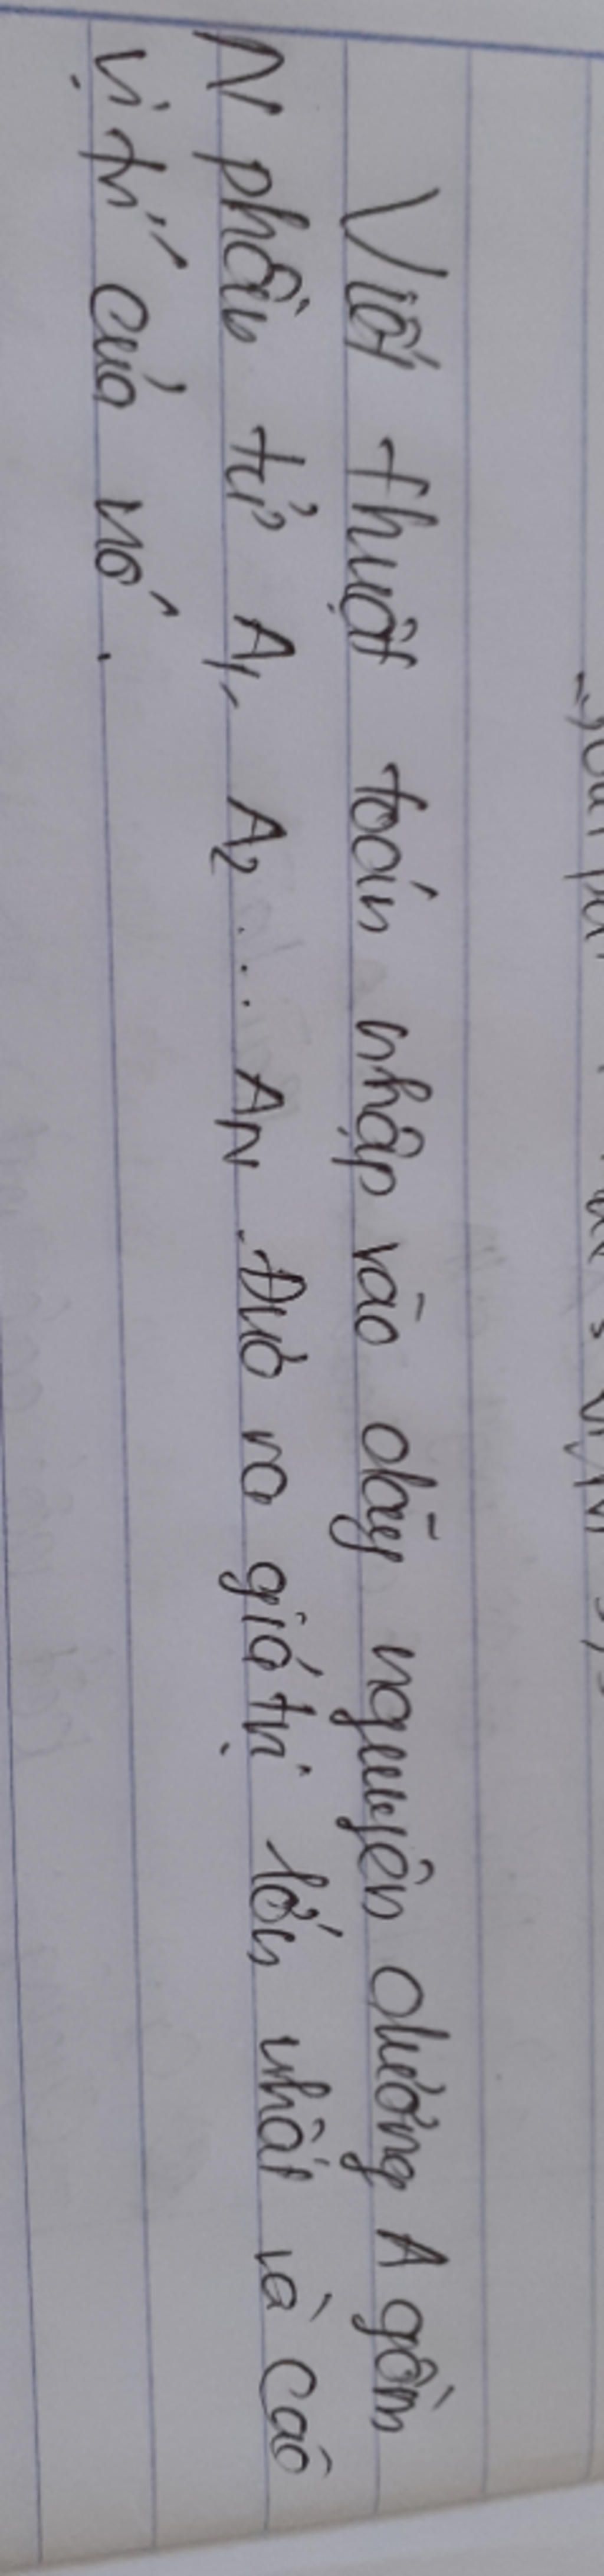 Viết thuật toán nhập vào dãy nguyên dương A gồm
N phần tử A1, A2 ... AN. Đưa ra giá trị lớn nhất và các
vị trí của nó.